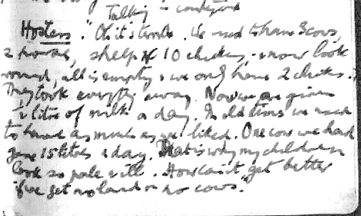 Talking in
Hostess "Oh it's terrible. We used to have 3 cows,
2 horses, sheep & 10 chickens, & now look
round, all is empty & we only have 2 chickens.
They took everything away. Now we are given
litre of milk a day. In old times we used
to have as much as we liked. One cow we had
gave 15 litres a day. That is why my children
look so pale & ill. How can it get better
if we get no land or no cows."